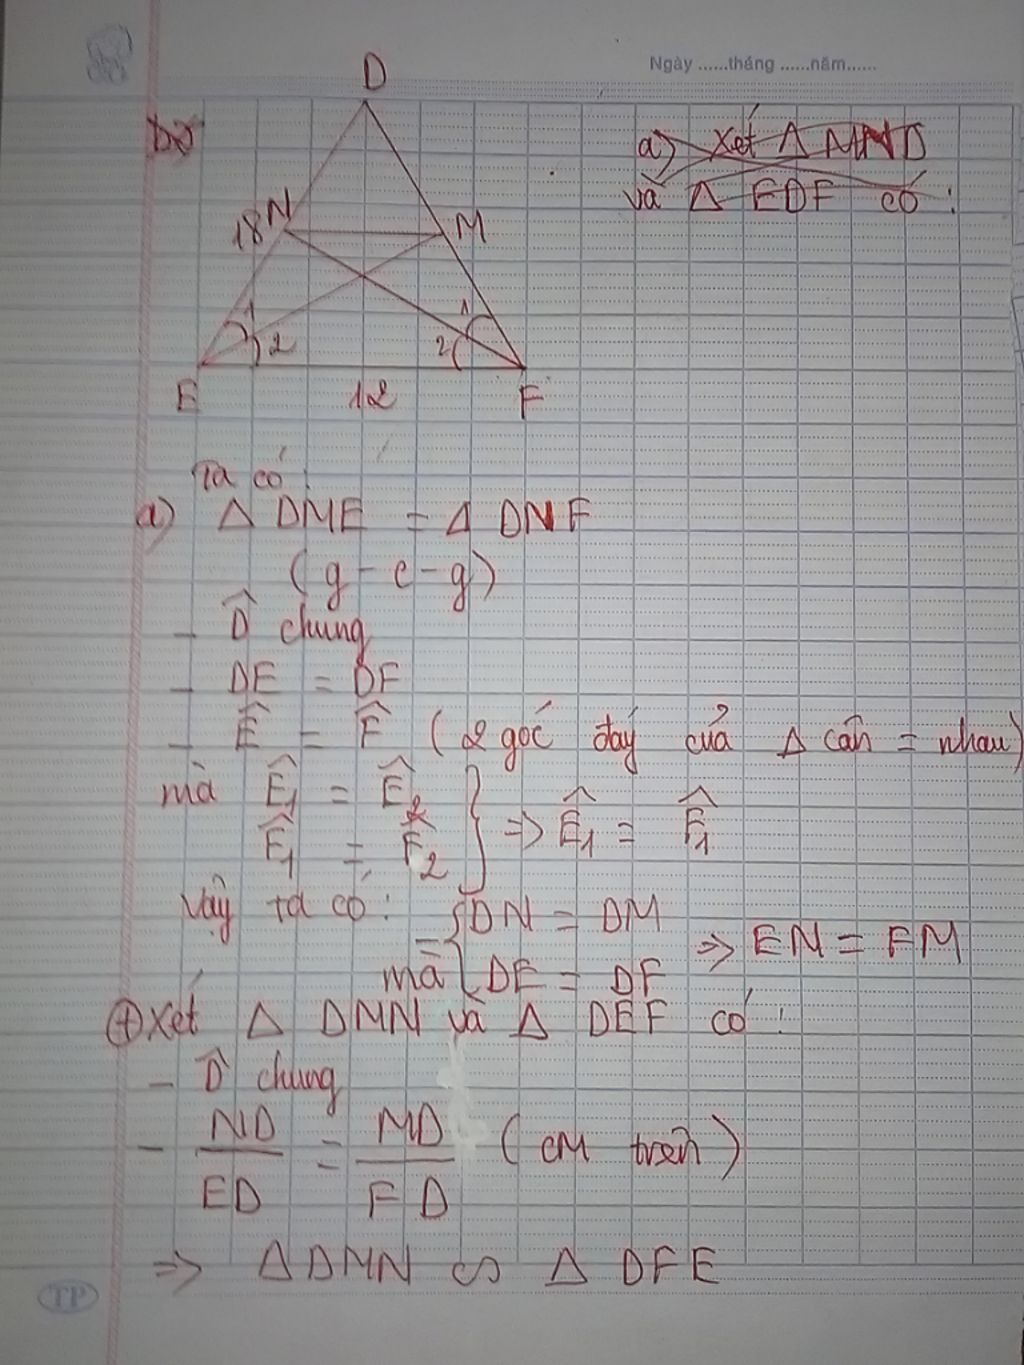 Ngày ......tháng ......năm......
D
a) Xét Δ MND
và Δ EDF có :
18 N
M
1
1
2
2
E
12
F
Ta có :
a) Δ DME = Δ DNF
(g - c - g)
- D̂ chung
- DE = DF
- Ê = F̂ (2 góc đáy của Δ cân = nhau)
mà Ê1 = Ê2
F̂1 = F̂2
=> Ê1 = F̂1
Vậy ta có : DN = DM
mà DE = DF
=> EN = FM
+ Xét Δ DMN và Δ DEF có :
- D̂ chung
- ND/ED = MD/FD (CM trên)
=> Δ DMN ∽ Δ DFE
TP